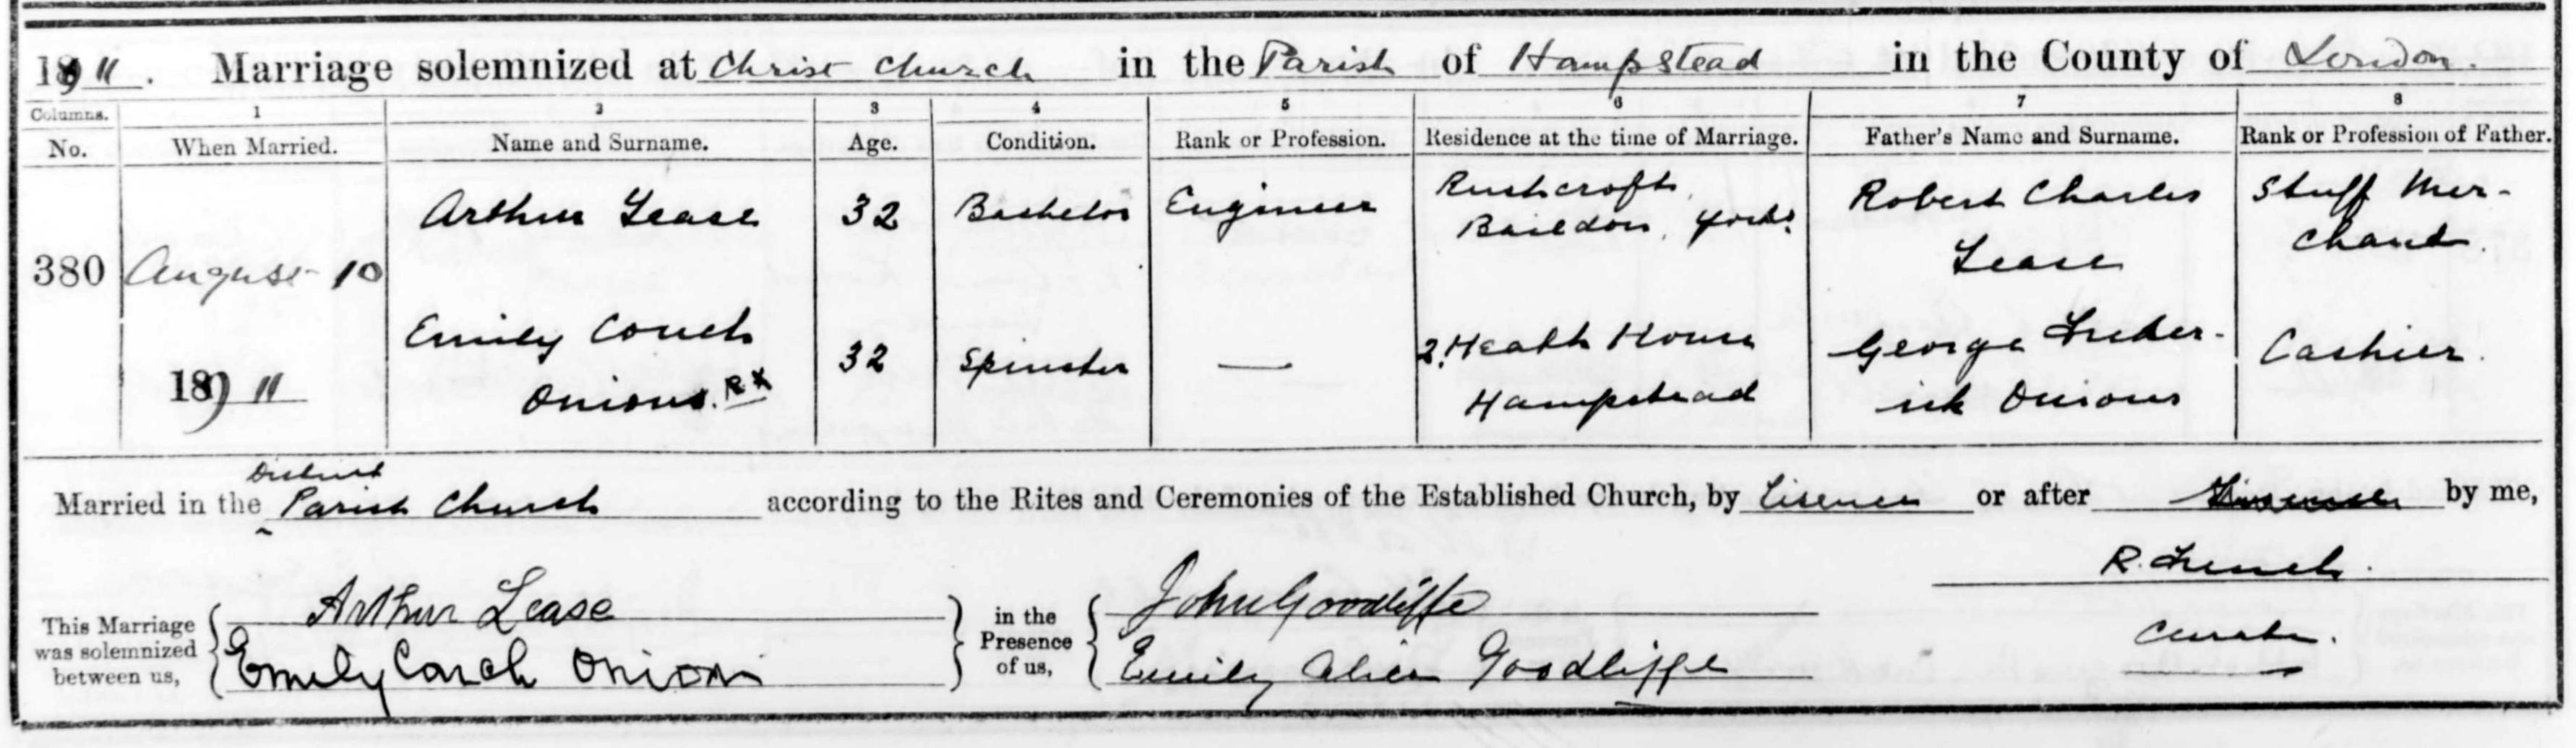 1911. Marriage solemnized at Christ Church in the Parish of Hampstead in the County of London.
Columns. 1 2 3 4 5 6 7 8
No. When Married. Name and Surname. Age. Condition. Rank or Profession. Residence at the time of Marriage. Father's Name and Surname. Rank or Profession of Father.
380
August 10
1911
Arthur Lease
32
Bachelor
Engineer
Rushcroft,
Baildon, Yorks.
Robert Charles
Lease
Stuff Mer-
chant.
Emily Couch
Onions.
32
Spinster
—
2. Heath House
Hampstead
George Freder-
ick Onions
Cashier.
District
Married in the Parish Church according to the Rites and Ceremonies of the Established Church, by Licence or after by me,
R. French.
Curate.
This Marriage
was solemnized
between us,
Arthur Lease
Emily Couch Onions
in the
Presence
of us,
John Goodliffe
Emily Alice Goodliffe